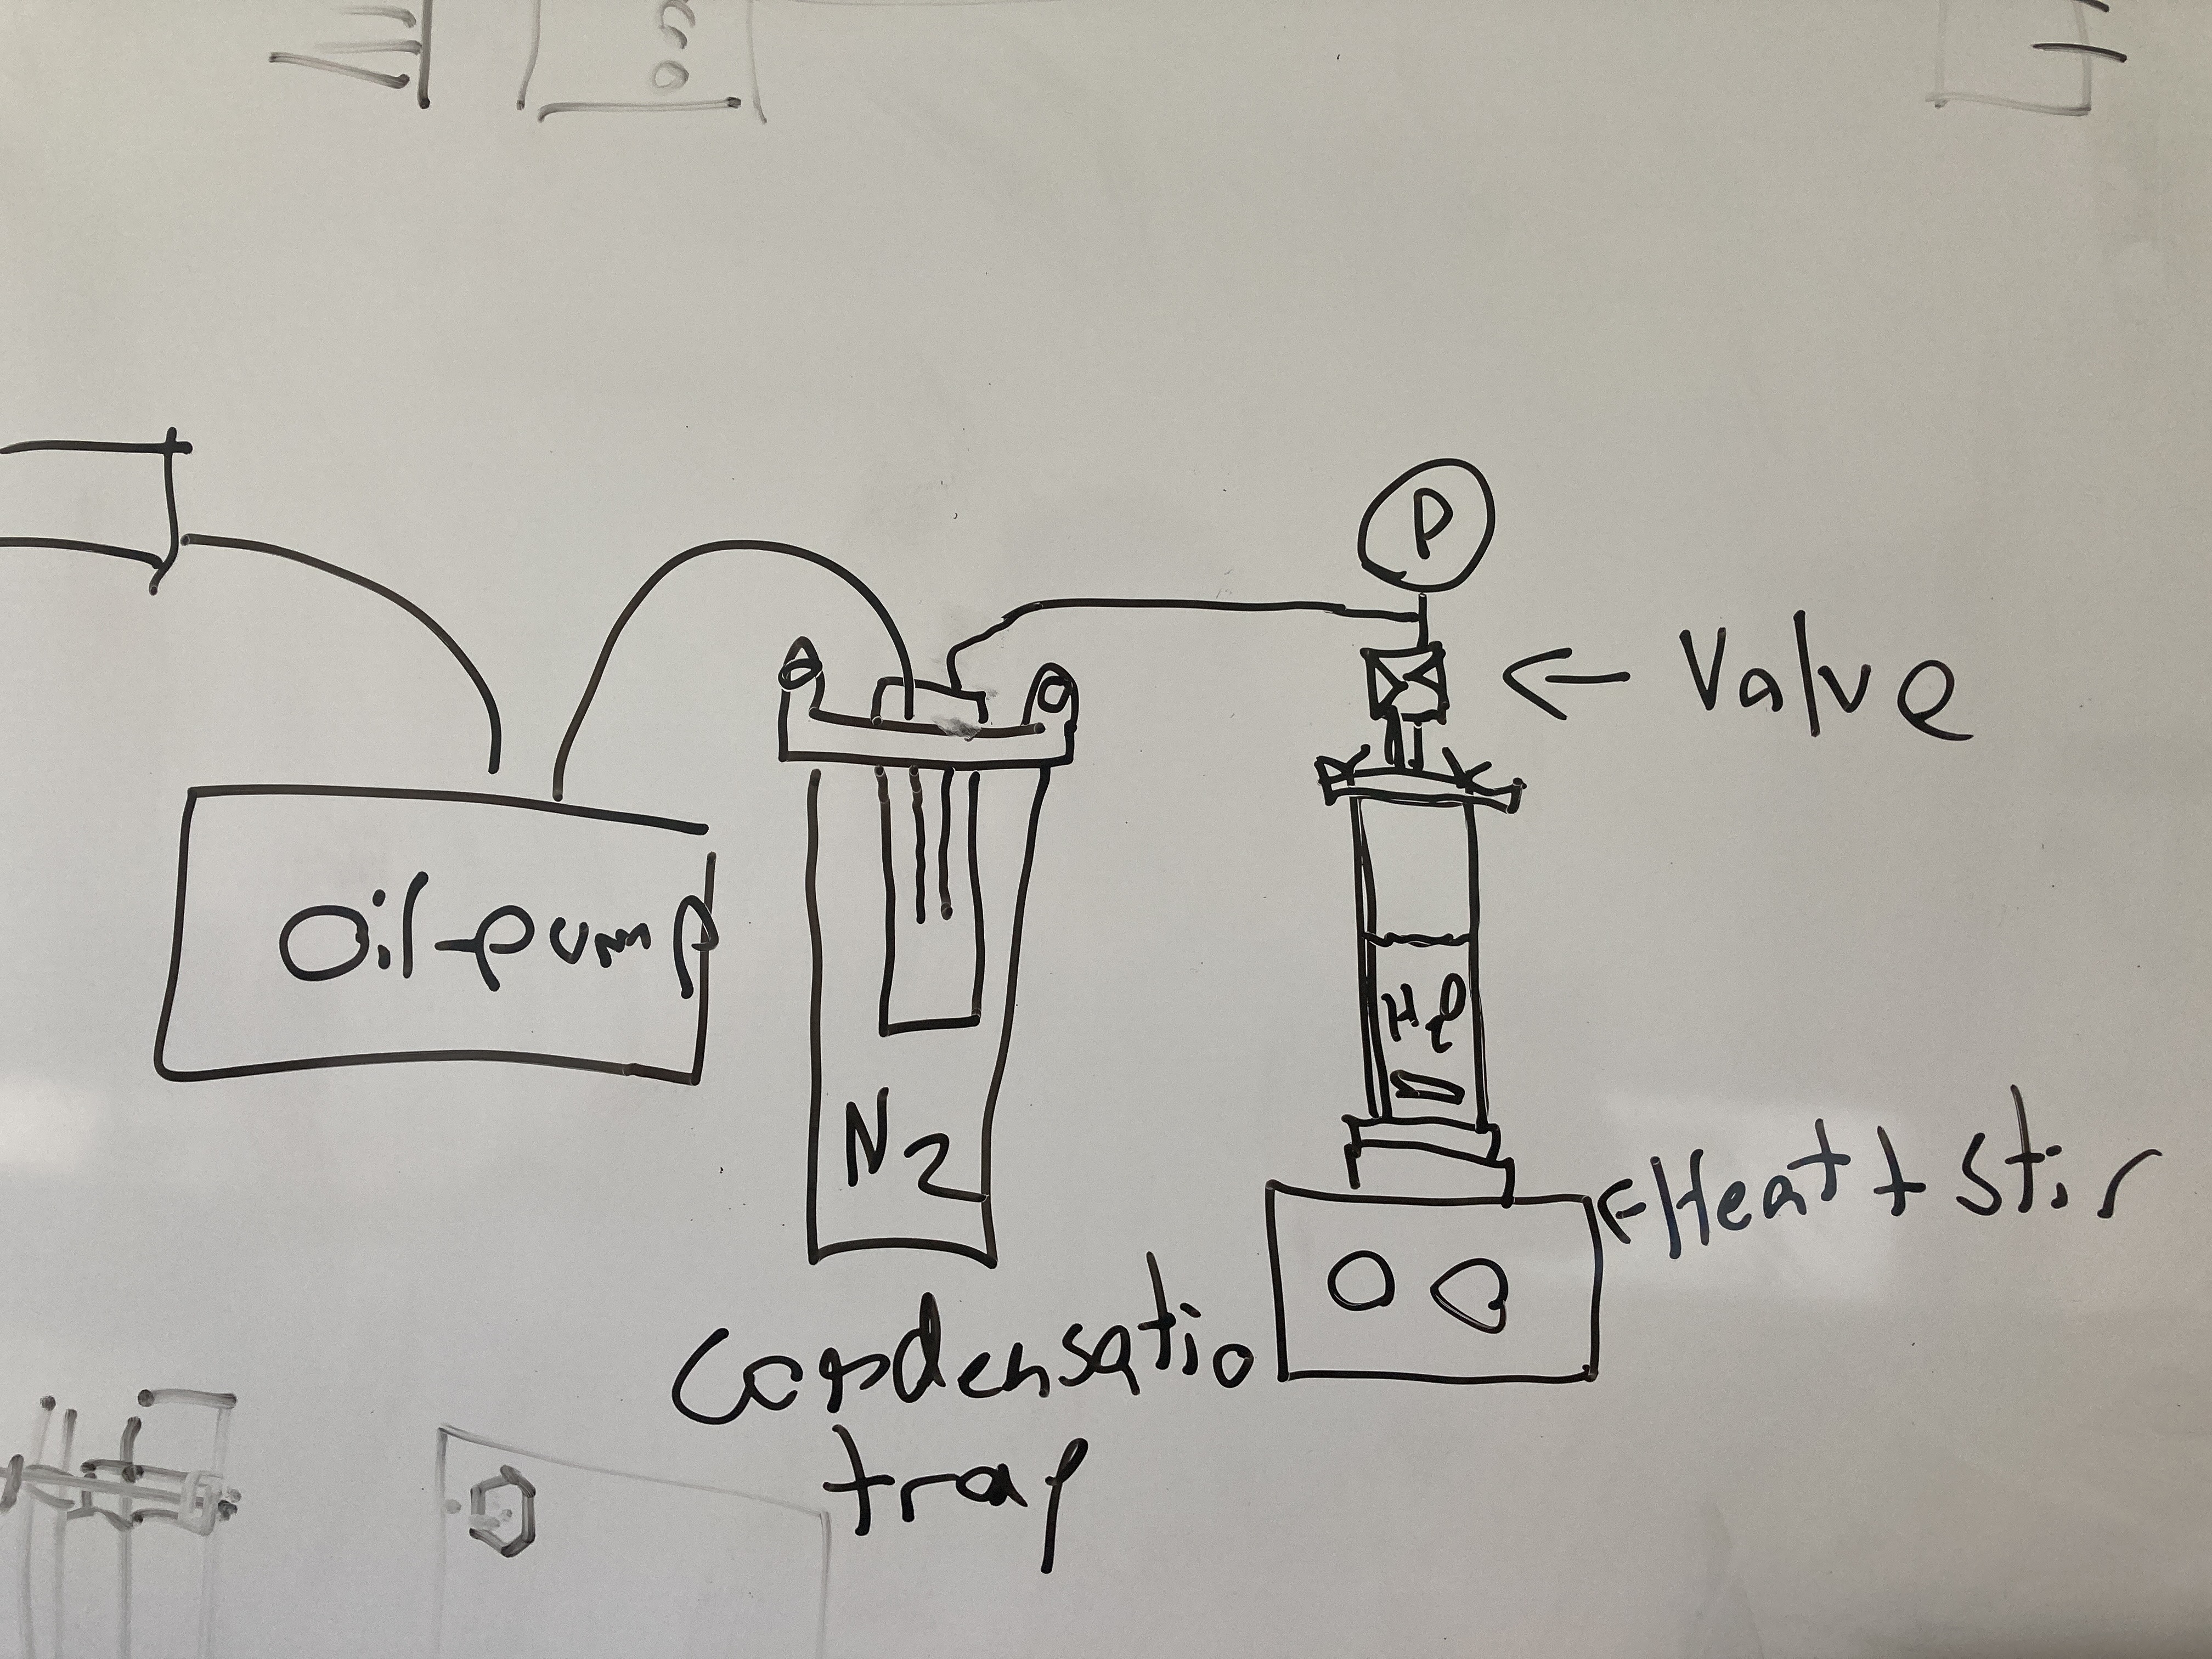 P
← Valve
Oil-pump
H2O
N2
← Heat + Stir
Condensatio
trap